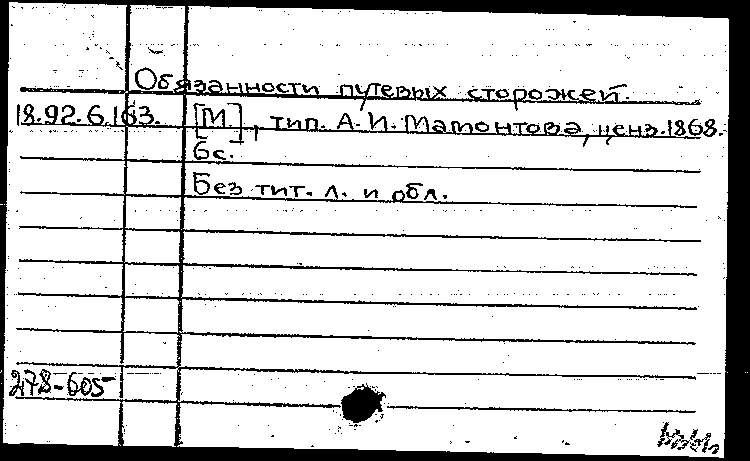 Обязанности путевых сторожей.
18.92.6.163. [М], тип. А. И. Мамонтова, ценз. 1868.
6с.
Без тит. л. и обл.
278-605